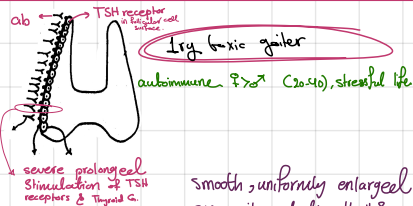 ab
TSH receptor
in follicular cell
surface.
1ry toxic goiter
autoimmune ♀>♂ (20-40), stressful life
severe prolonged
Stimulation of TSH
receptors & Thyroid G.
smooth, uniformly enlarged